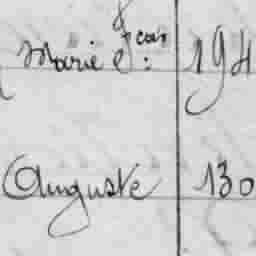 Jean
Marie E: 194
Auguste 130